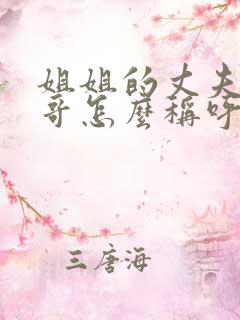 姐姐的丈夫
哥怎麼稱呼
三唐海